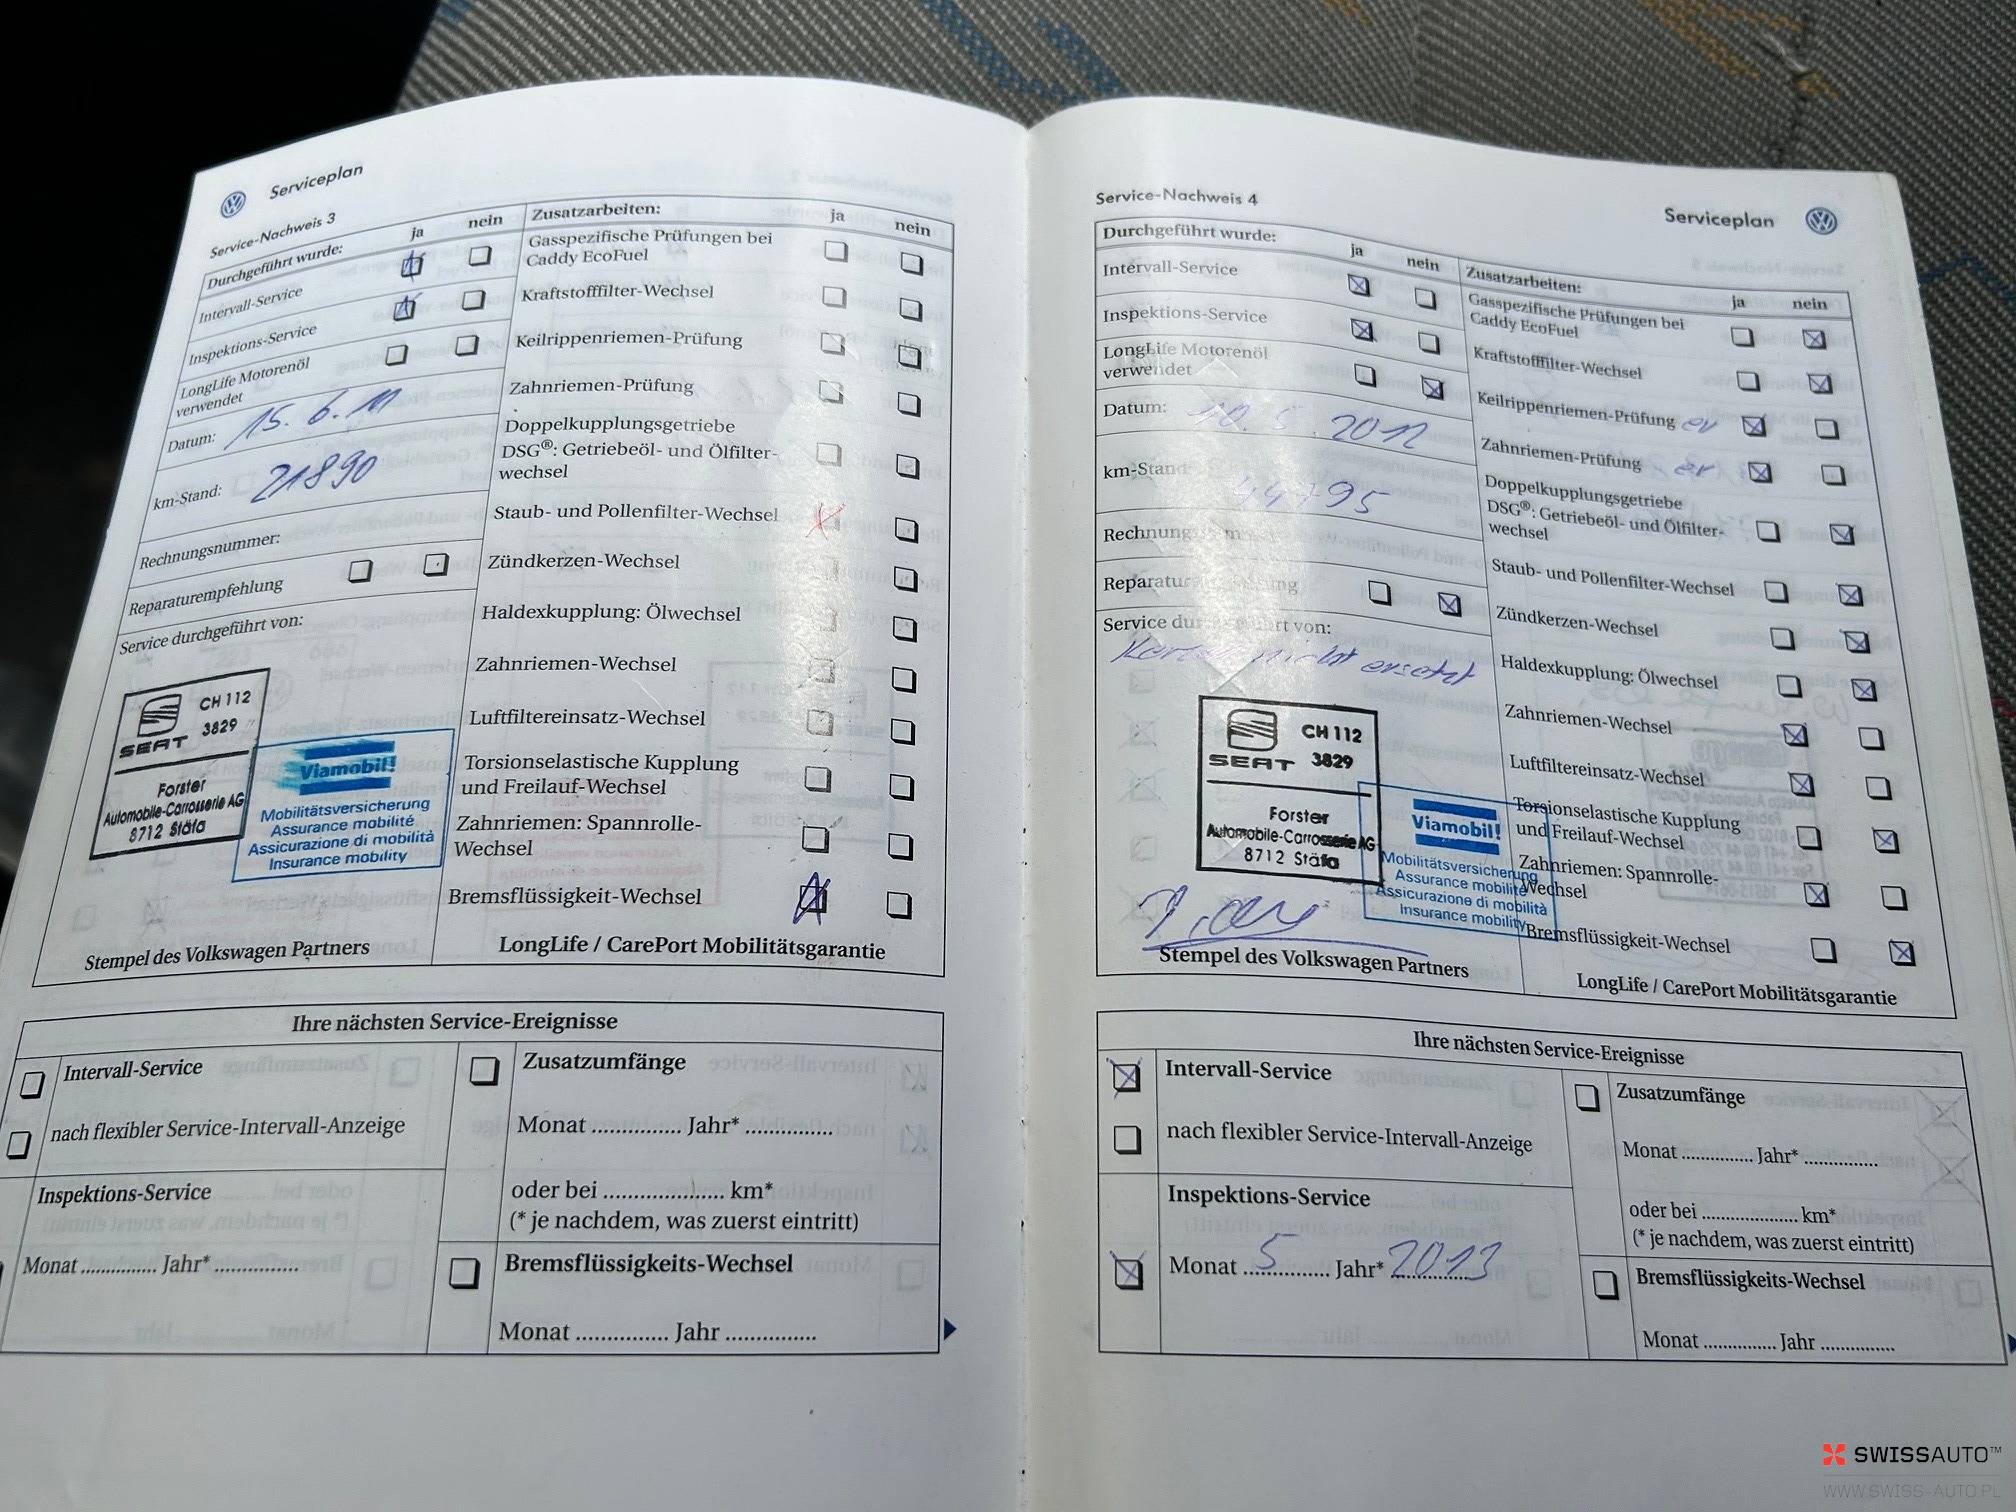 Serviceplan
Service-Nachweis 3
Durchgeführt wurde: ja nein
Intervall-Service
Inspektions-Service
LongLife Motorenöl
verwendet
Datum: 15.6.11
km-Stand: 21890
Rechnungsnummer:
Reparaturempfehlung
Service durchgeführt von:
SEAT
CH 112
3829
Forster
Automobile-Carrosserie AG
8712 Stäfa
Viamobil!
Mobilitätsversicherung
Assurance mobilité
Assicurazione di mobilità
Insurance mobility
Stempel des Volkswagen Partners
Zusatzarbeiten: ja nein
Gasspezifische Prüfungen bei
Caddy EcoFuel
Kraftstofffilter-Wechsel
Keilrippenriemen-Prüfung
Zahnriemen-Prüfung
Doppelkupplungsgetriebe
DSG®: Getriebeöl- und Ölfilter-
wechsel
Staub- und Pollenfilter-Wechsel
Zündkerzen-Wechsel
Haldexkupplung: Ölwechsel
Zahnriemen-Wechsel
Luftfiltereinsatz-Wechsel
Torsionselastische Kupplung
und Freilauf-Wechsel
Zahnriemen: Spannrolle-
Wechsel
Bremsflüssigkeit-Wechsel
LongLife / CarePort Mobilitätsgarantie
Ihre nächsten Service-Ereignisse
Intervall-Service
nach flexibler Service-Intervall-Anzeige
Inspektions-Service
Monat .............. Jahr* ...............
Zusatzumfänge
Monat .............. Jahr* ..............
oder bei .................... km*
(* je nachdem, was zuerst eintritt)
Bremsflüssigkeits-Wechsel
Monat ............... Jahr ...............
Service-Nachweis 4
Serviceplan
Durchgeführt wurde: ja nein
Intervall-Service
Inspektions-Service
LongLife Motorenöl
verwendet
Datum: 10.5.2012
km-Stand: 44795
Service durchgeführt von:
nicht ersetzt
SEAT
CH 112
3829
Forster
Automobile-Carrosserie AG
8712 Stäfa
Viamobil!
Mobilitätsversicherung
Assurance mobilité
Assicurazione di mobilità
Insurance mobility
Stempel des Volkswagen Partners
Zusatzarbeiten: ja nein
Gasspezifische Prüfungen bei
Caddy EcoFuel
Kraftstofffilter-Wechsel
Keilrippenriemen-Prüfung
Zahnriemen-Prüfung
Doppelkupplungsgetriebe
DSG®: Getriebeöl- und Ölfilter-
wechsel
Staub- und Pollenfilter-Wechsel
Zündkerzen-Wechsel
Haldexkupplung: Ölwechsel
Zahnriemen-Wechsel
Luftfiltereinsatz-Wechsel
Torsionselastische Kupplung
und Freilauf-Wechsel
Zahnriemen: Spannrolle-
Wechsel
Bremsflüssigkeit-Wechsel
LongLife / CarePort Mobilitätsgarantie
Ihre nächsten Service-Ereignisse
Intervall-Service
nach flexibler Service-Intervall-Anzeige
Inspektions-Service
Monat 5 Jahr* 2013
Zusatzumfänge
Monat .............. Jahr* ..............
oder bei .................... km*
(* je nachdem, was zuerst eintritt)
Bremsflüssigkeits-Wechsel
Monat ............... Jahr ...............
SWISSAUTO™
WWW.SWISS-AUTO.PL